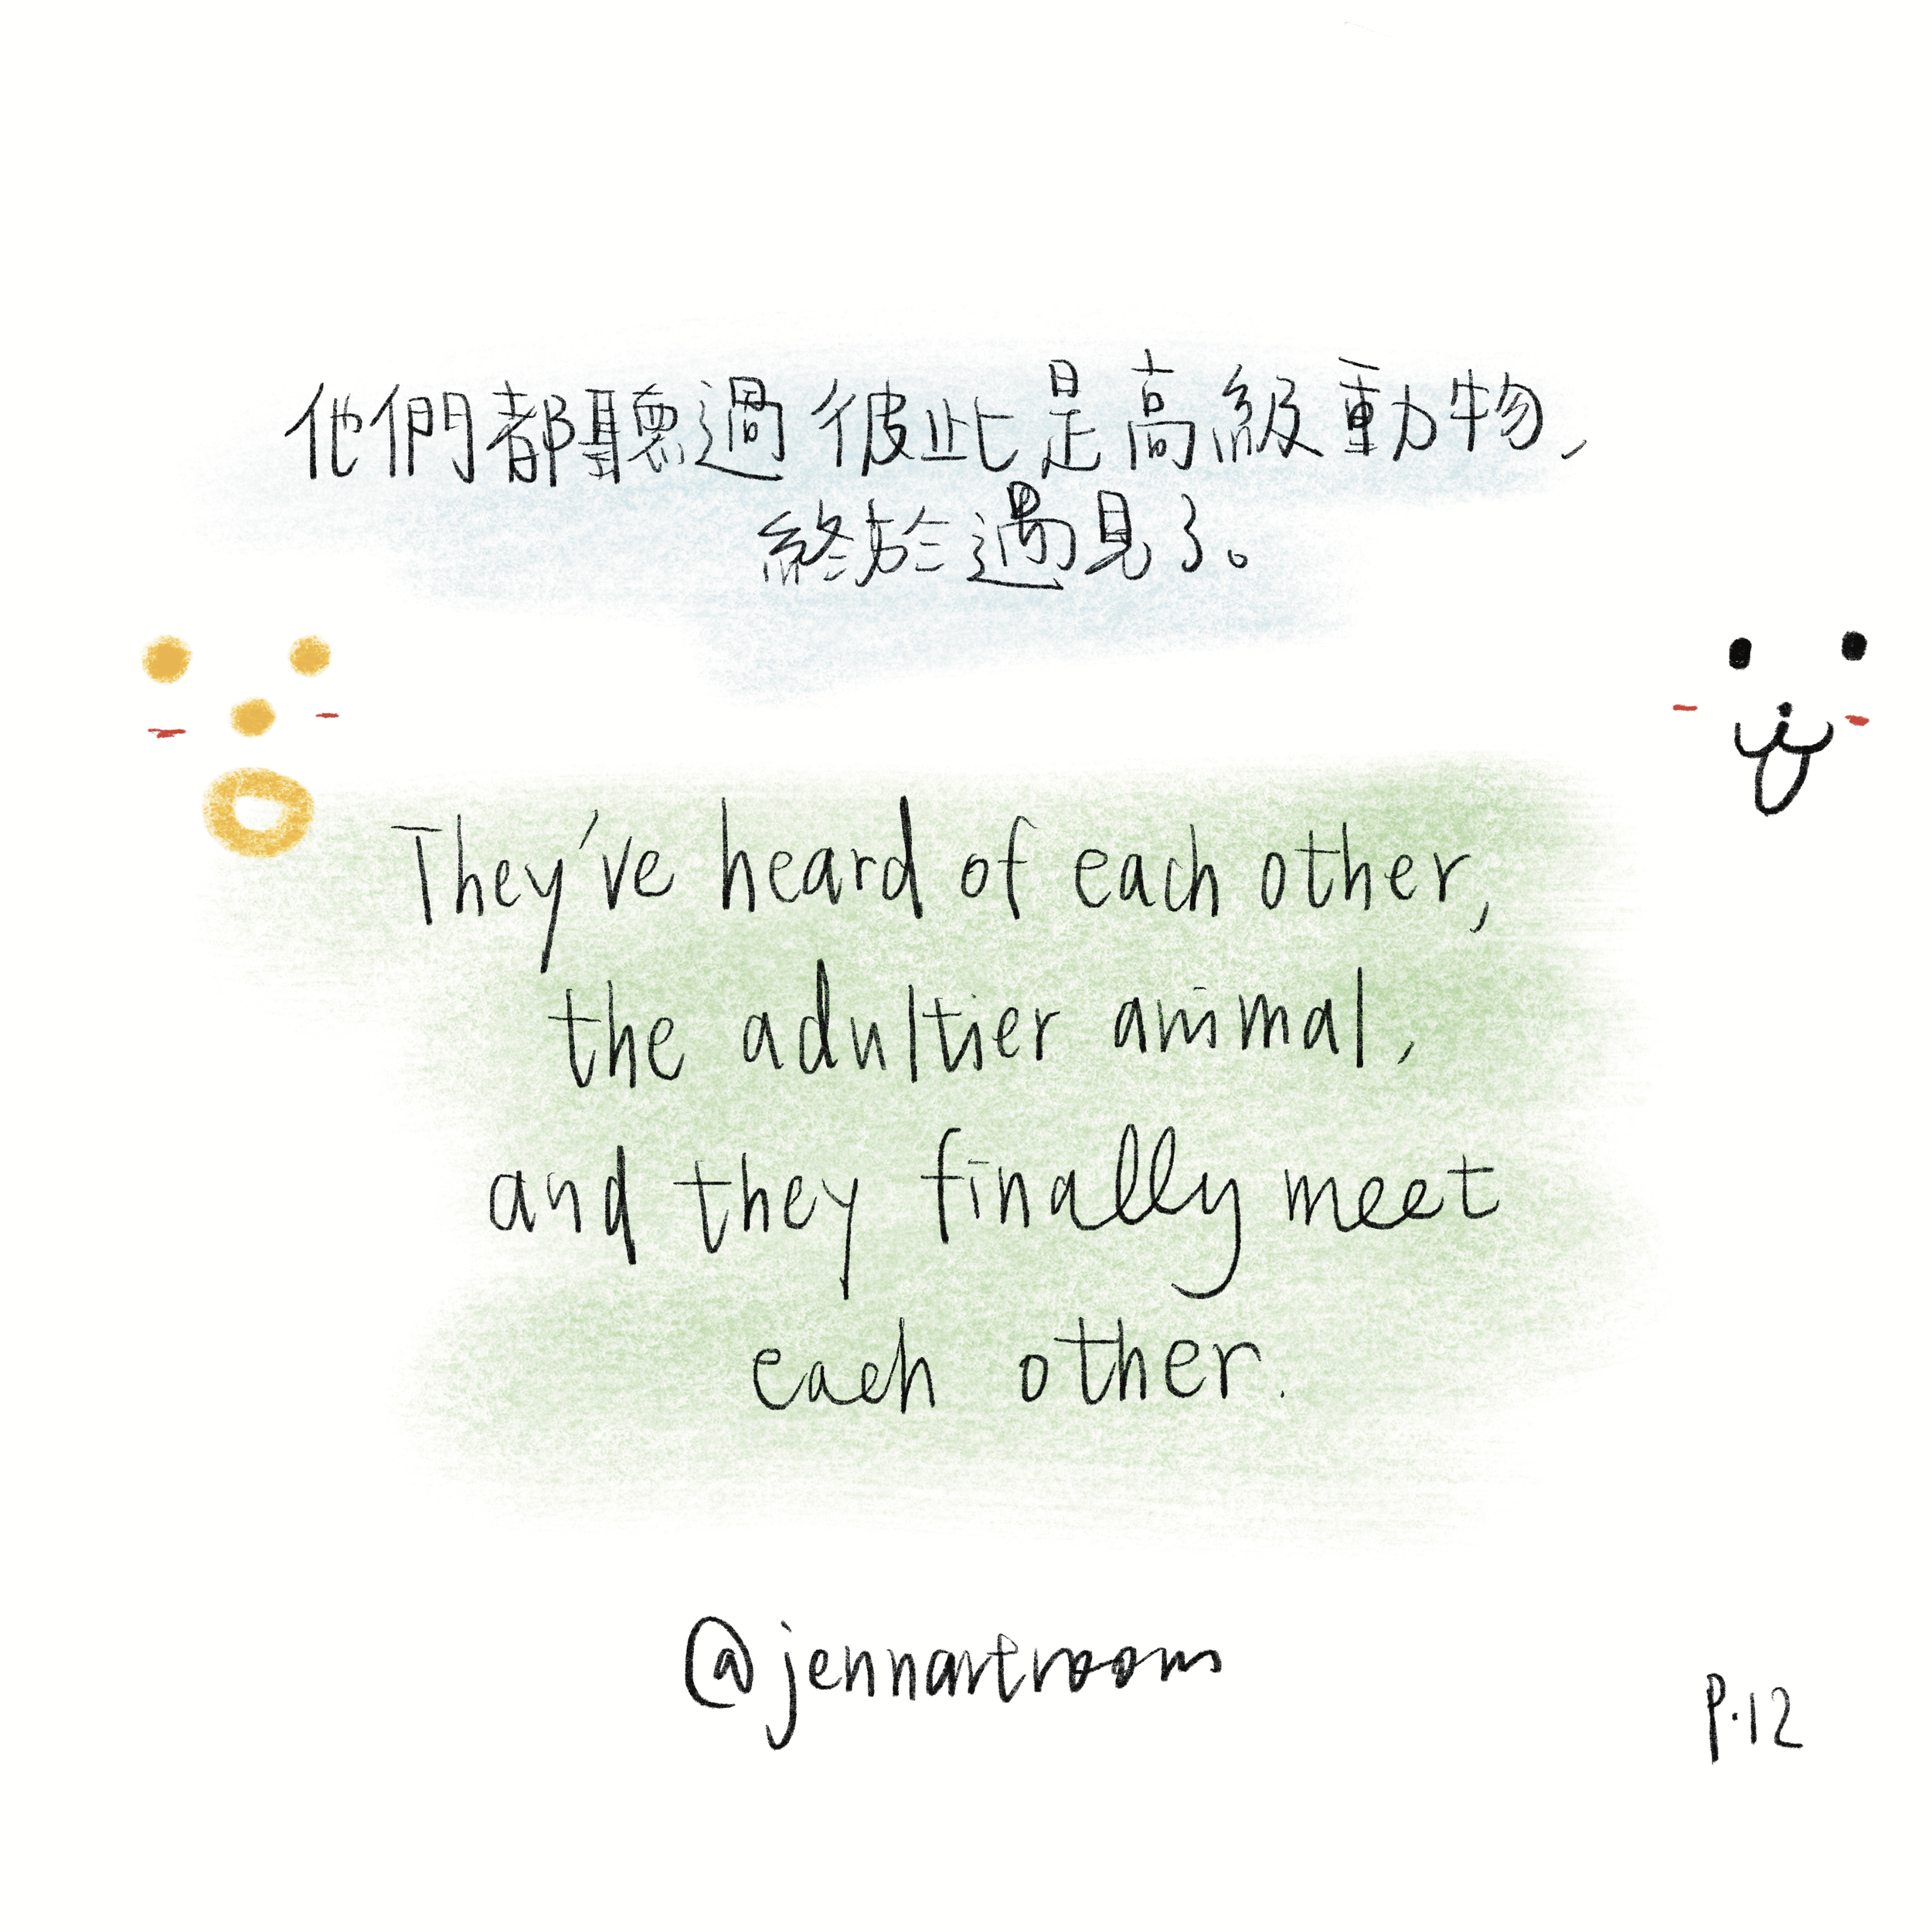 他們都聽過彼此是高級動物,
終於遇見了。
They've heard of each other,
the adultier animal,
and they finally meet
each other.
@jennartroom
P.12